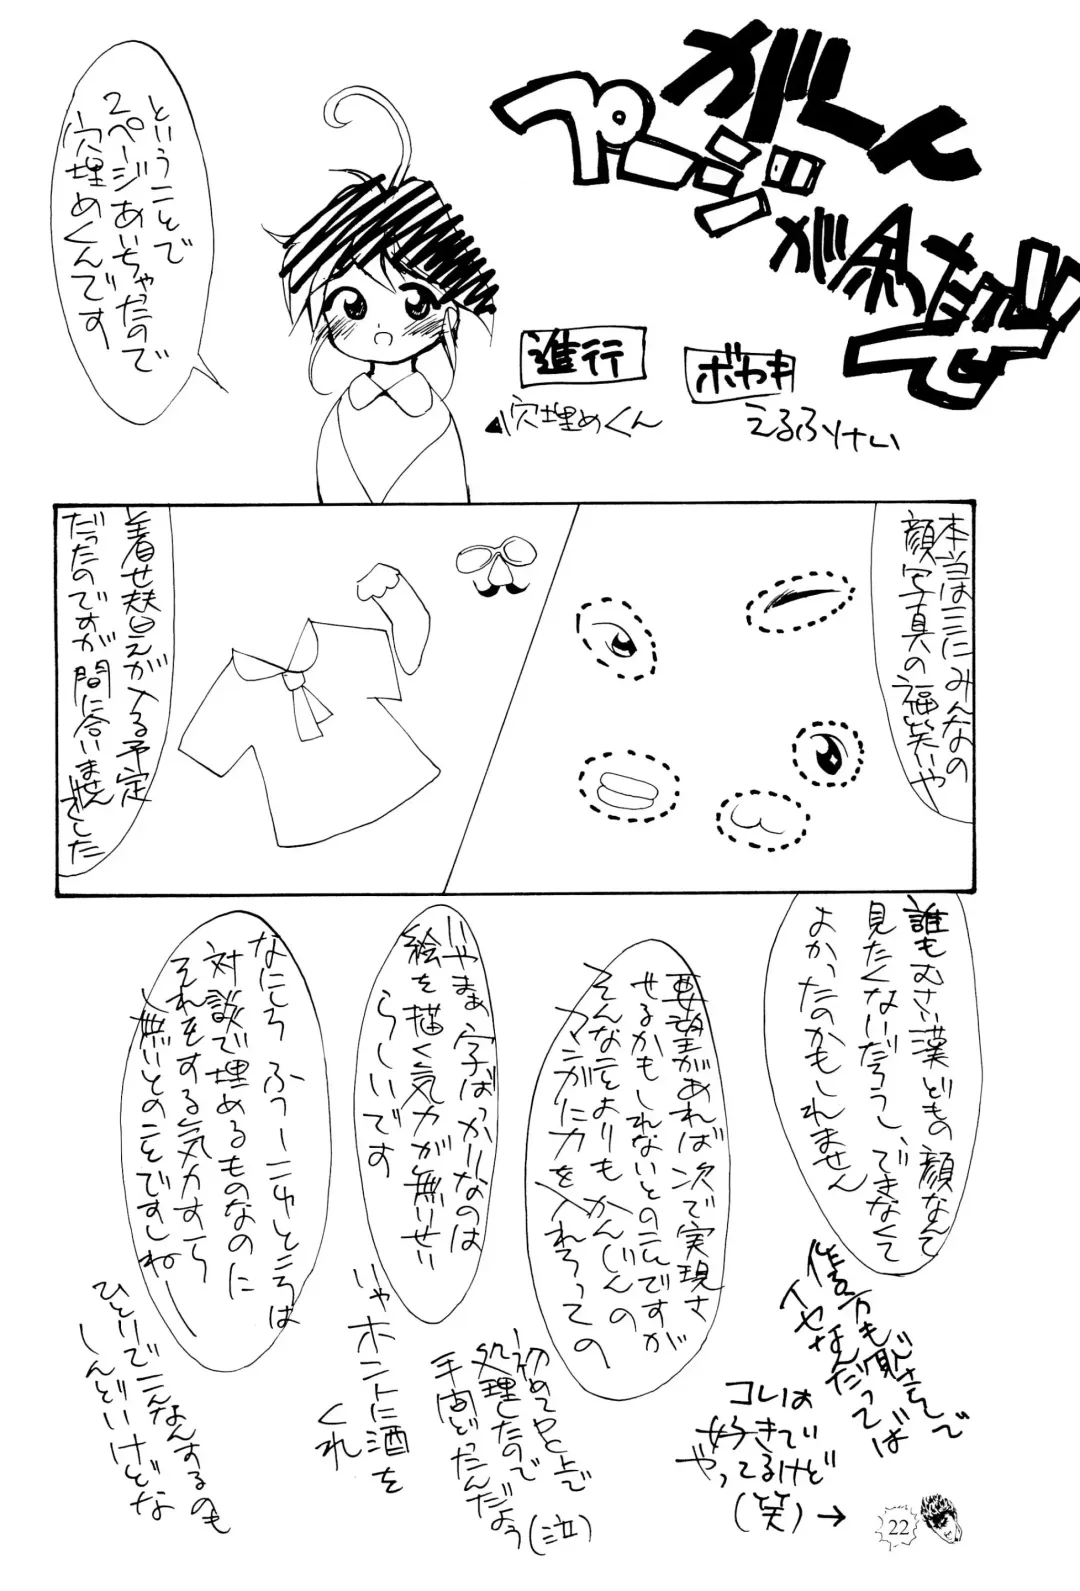 がーん
ページが余ったぜ!!
ボヤキ
えるふりけい
進行
穴埋めくん
ということで
2ページあいちゃったので
穴埋めくんです
本当はここにみんなの
顔写真の福笑いや
着せ替えが入る予定
だったのですが間に合いませんでした
誰もむさい漢どもの顔なんて
見たくないだろうし、でまなくて
よかったのかもしれません
作る方も版下さえしで
イヤなんだってば
コレは
好きで
やってるけど
(笑)→
要望があれば次で実現さ
せるかもしれないとのことですが
そんなことよりもかんじんの
マンガに力を入れろっての
初めてPC上で
処理したので
手間どったんだよう
(泣)
いやまぁ字ばっかりなのは
絵を描く気力が無いせい
らしいです
いやホントに酒を
くれ
なにしろふつーこゆところは
対談で埋めるものなのに
それをする気力すら
無いとのことですしねー
ひとりでこんなんするのも
しんどいけどな
22